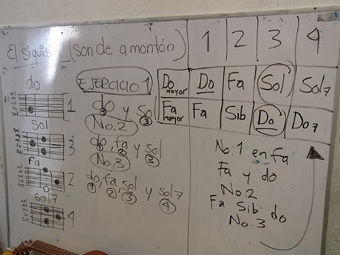 El siquisi (son de a montón)
1 2 3 4
Do mayor Do Fa Sol Sol7
Fa mayor Fa Sib Do Do7
do
1
Sol
3
Fa
2
4
EJERCICIO 1
do y Sol
① ③
No.2
do, fa y sol
① ② ③
No.3
do, fa, sol y sol7
① ② ③ ④
No.1 en fa
Fa y do
No.2
Fa Sib do
No.3